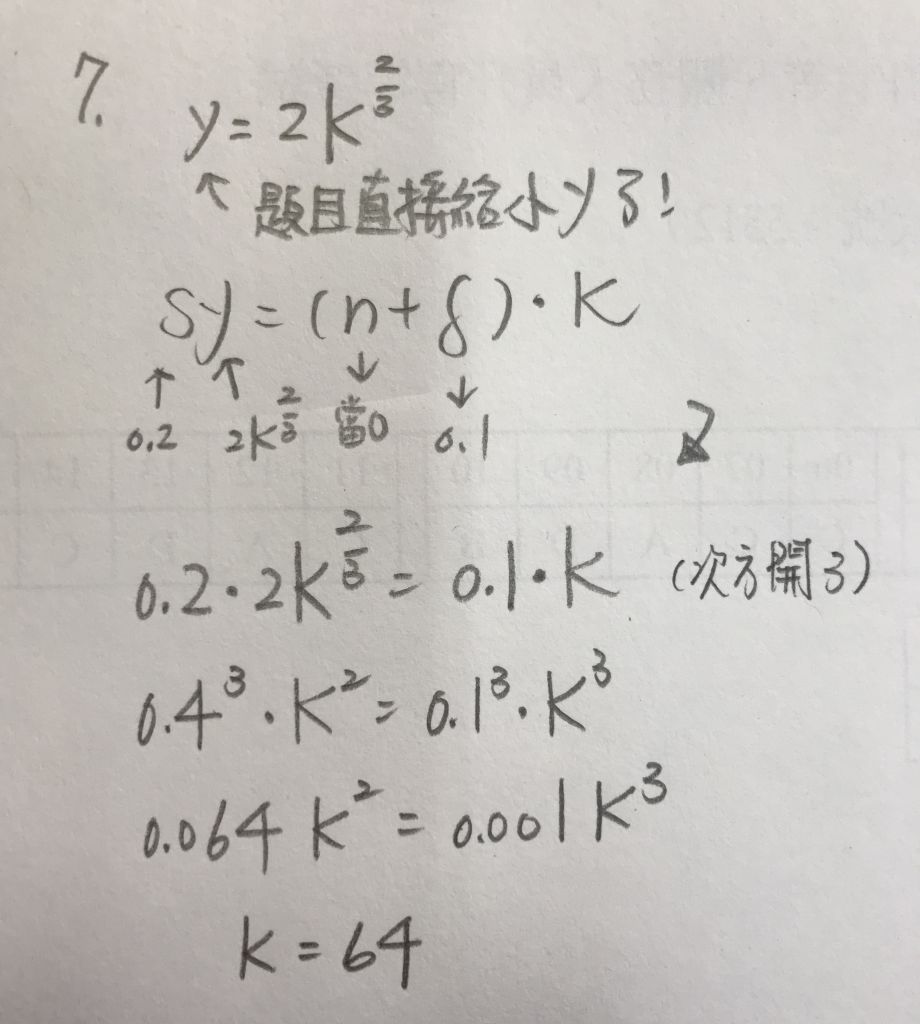 7.
y = 2k^{2/3}
↑ 題目直接給小y了!
sy = (n + δ) · k
↑ 0.2 ↑ 2k^{2/3} ↓ 當0 ↓ 0.1
0.2 · 2k^{2/3} = 0.1 · k (次方開3)
0.4³ · k² = 0.1³ · k³
0.064 k² = 0.001 k³
k = 64